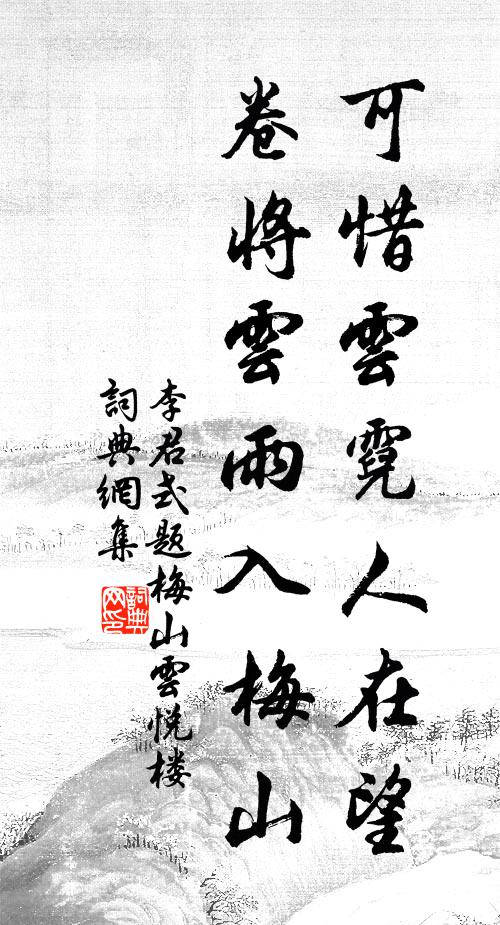 可惜雲霓人在望
卷將雲雨入梅山
李君式題梅山雲悅楼
詞典網集
詞典网印